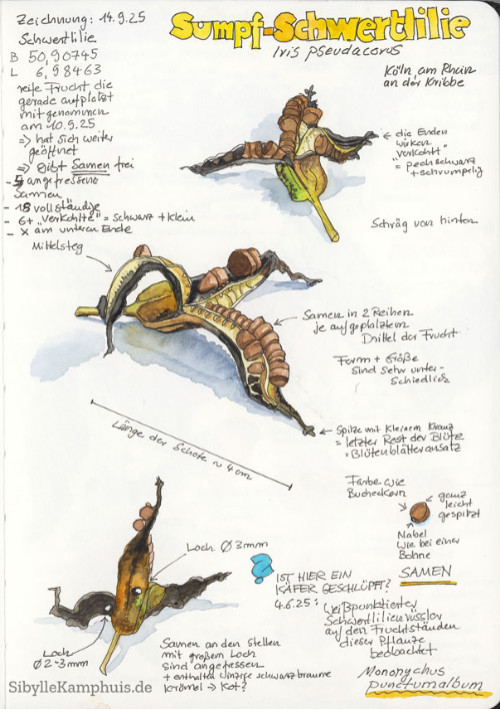 Zeichnung: 14.9.25
Schwertlilie
B 50,90745
L 6,98463
reife Frucht die
gerade aufplatzt
mitgenommen
am 10.9.25
=> hat sich weiter
geöffnet
=> gibt Samen frei
- 5 angefressene
Samen
- 18 vollständige
- 6+ "Verkohlte" = schwarz + klein
- x am unteren Ende
Sumpf-Schwertlilie
Iris pseudacorus
Köln, am Rhein
an der Kribbe
die Enden
wirken
"verkohlt"
= pechschwarz
+ schrumpelig
Schräg von hinten
Mittelsteg
Samen in 2 Reihen
je aufgeplatztem
Drittel der Frucht
Form + Größe
sind sehr unter-
schiedlich
Spitze mit kleinem Kranz
= letzter Rest der Blüte
= Blütenblätteransatz
Länge der Schote ~ 4 cm
Farbe wie
Bucheckern
ganz
leicht
gespitzt
Nabel
wie bei einer
Bohne
SAMEN
Loch Ø 3mm
Loch
Ø 2-3mm
? IST HIER EIN
KÄFER GESCHLÜPFT?
4.6.25: Weißpunktierter
Schwertlilienrüssler
auf den Fruchtständen
dieser Pflanze
beobachtet
Mononychus
punctumalbum
Samen an den Stellen
mit großem Loch
sind angefressen
+ enthalten winzige schwarzbraune
Krömel → Kot?
SibylleKamphuis.de